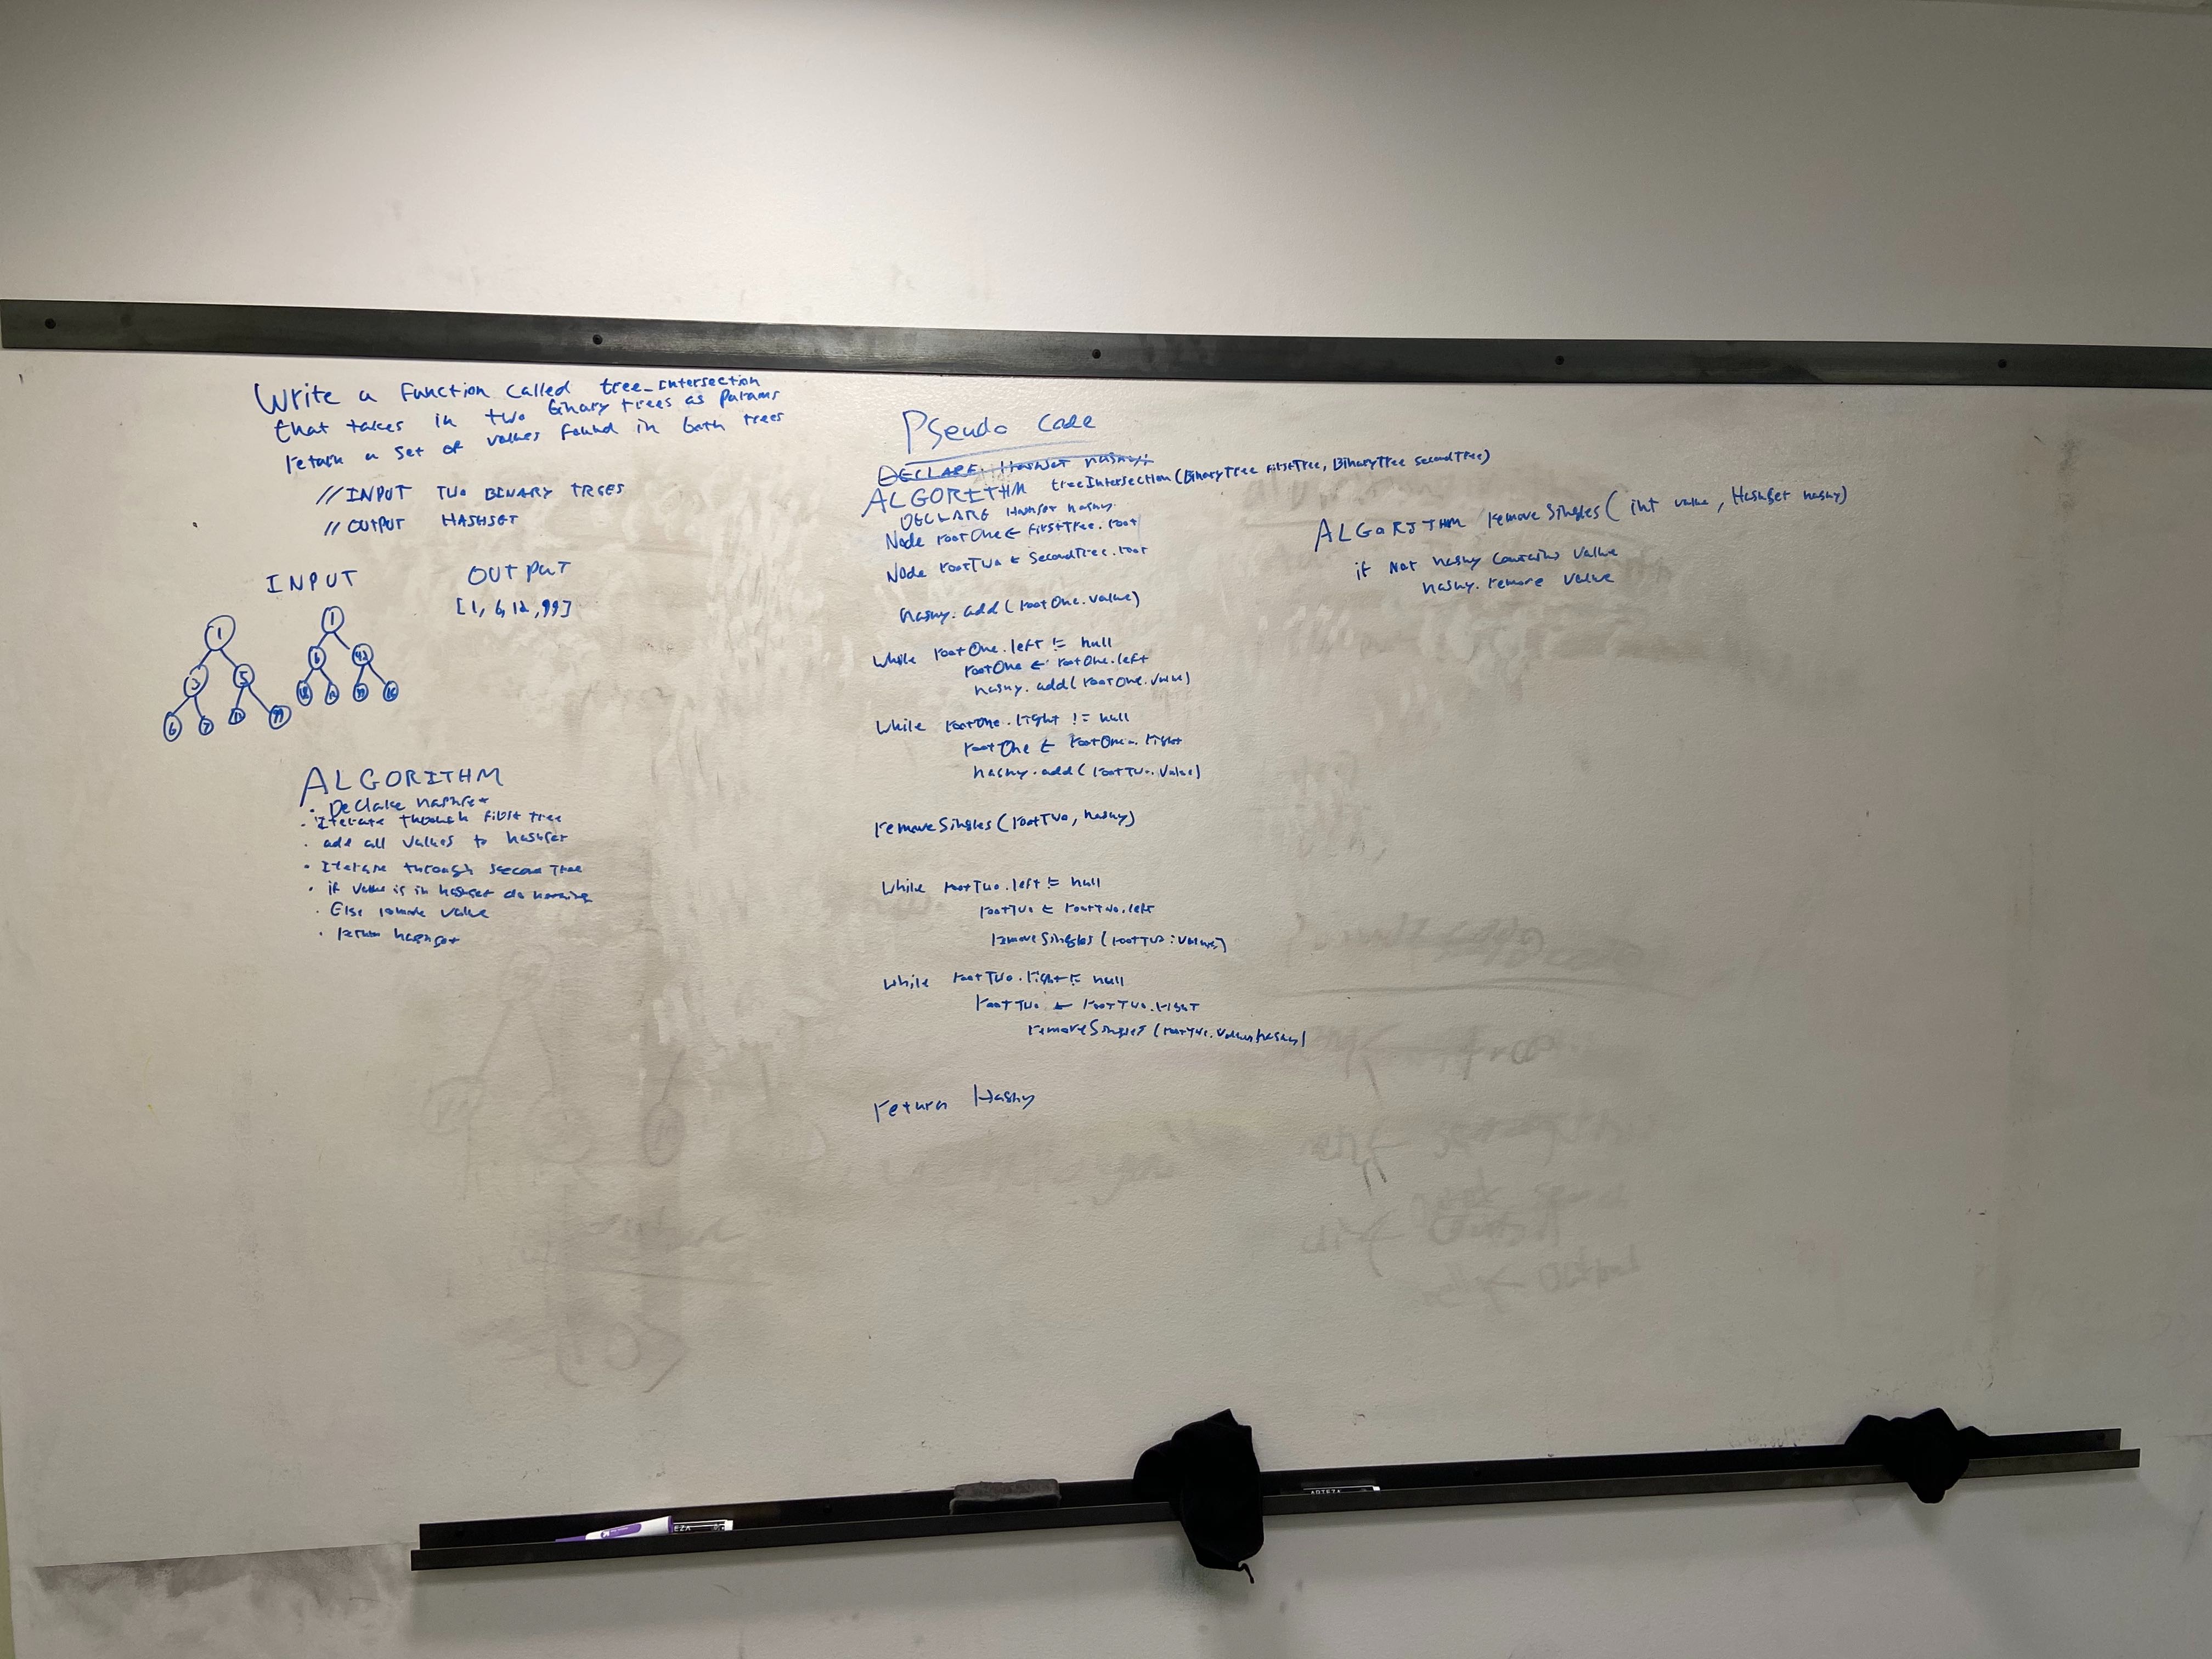 Write a function called tree_intersection
that takes in two binary trees as params
return a set of values found in both trees
// INPUT TWO BINARY TREES
// OUTPUT HASHSET
INPUT
OUTPUT
[1, 6, 12, 99]
1
5
6 7 99
1
6 42
ALGORITHM
· Declare hashset
· Iterate through first tree
· add all values to hashset
· Iterate through second tree
· if value is in hashset do nothing
· Else remove value
· return hashset
Pseudo Code
DECLARE Hashset hashy;
ALGORITHM treeIntersection(BinaryTree firstTree, BinaryTree secondTree)
DECLARE Hashset hashy
Node rootOne ← firstTree.root
Node rootTwo ← secondTree.root
hashy.add(rootOne.value)
while rootOne.left != null
rootOne ← rootOne.left
hashy.add(rootOne.value)
while rootOne.right != null
rootOne ← rootOne.right
hashy.add(rootTwo.value)
removeSingles(rootTwo, hashy)
while rootTwo.left != null
rootTwo ← rootTwo.left
removeSingles(rootTwo.value)
while rootTwo.right != null
rootTwo ← rootTwo.right
removeSingles(rootTwo.value, hashy)
return Hashy
ALGORITHM removeSingles(int value, HashSet hashy)
if Not hashy contains value
hashy.remove value
EZA
ARTEZA